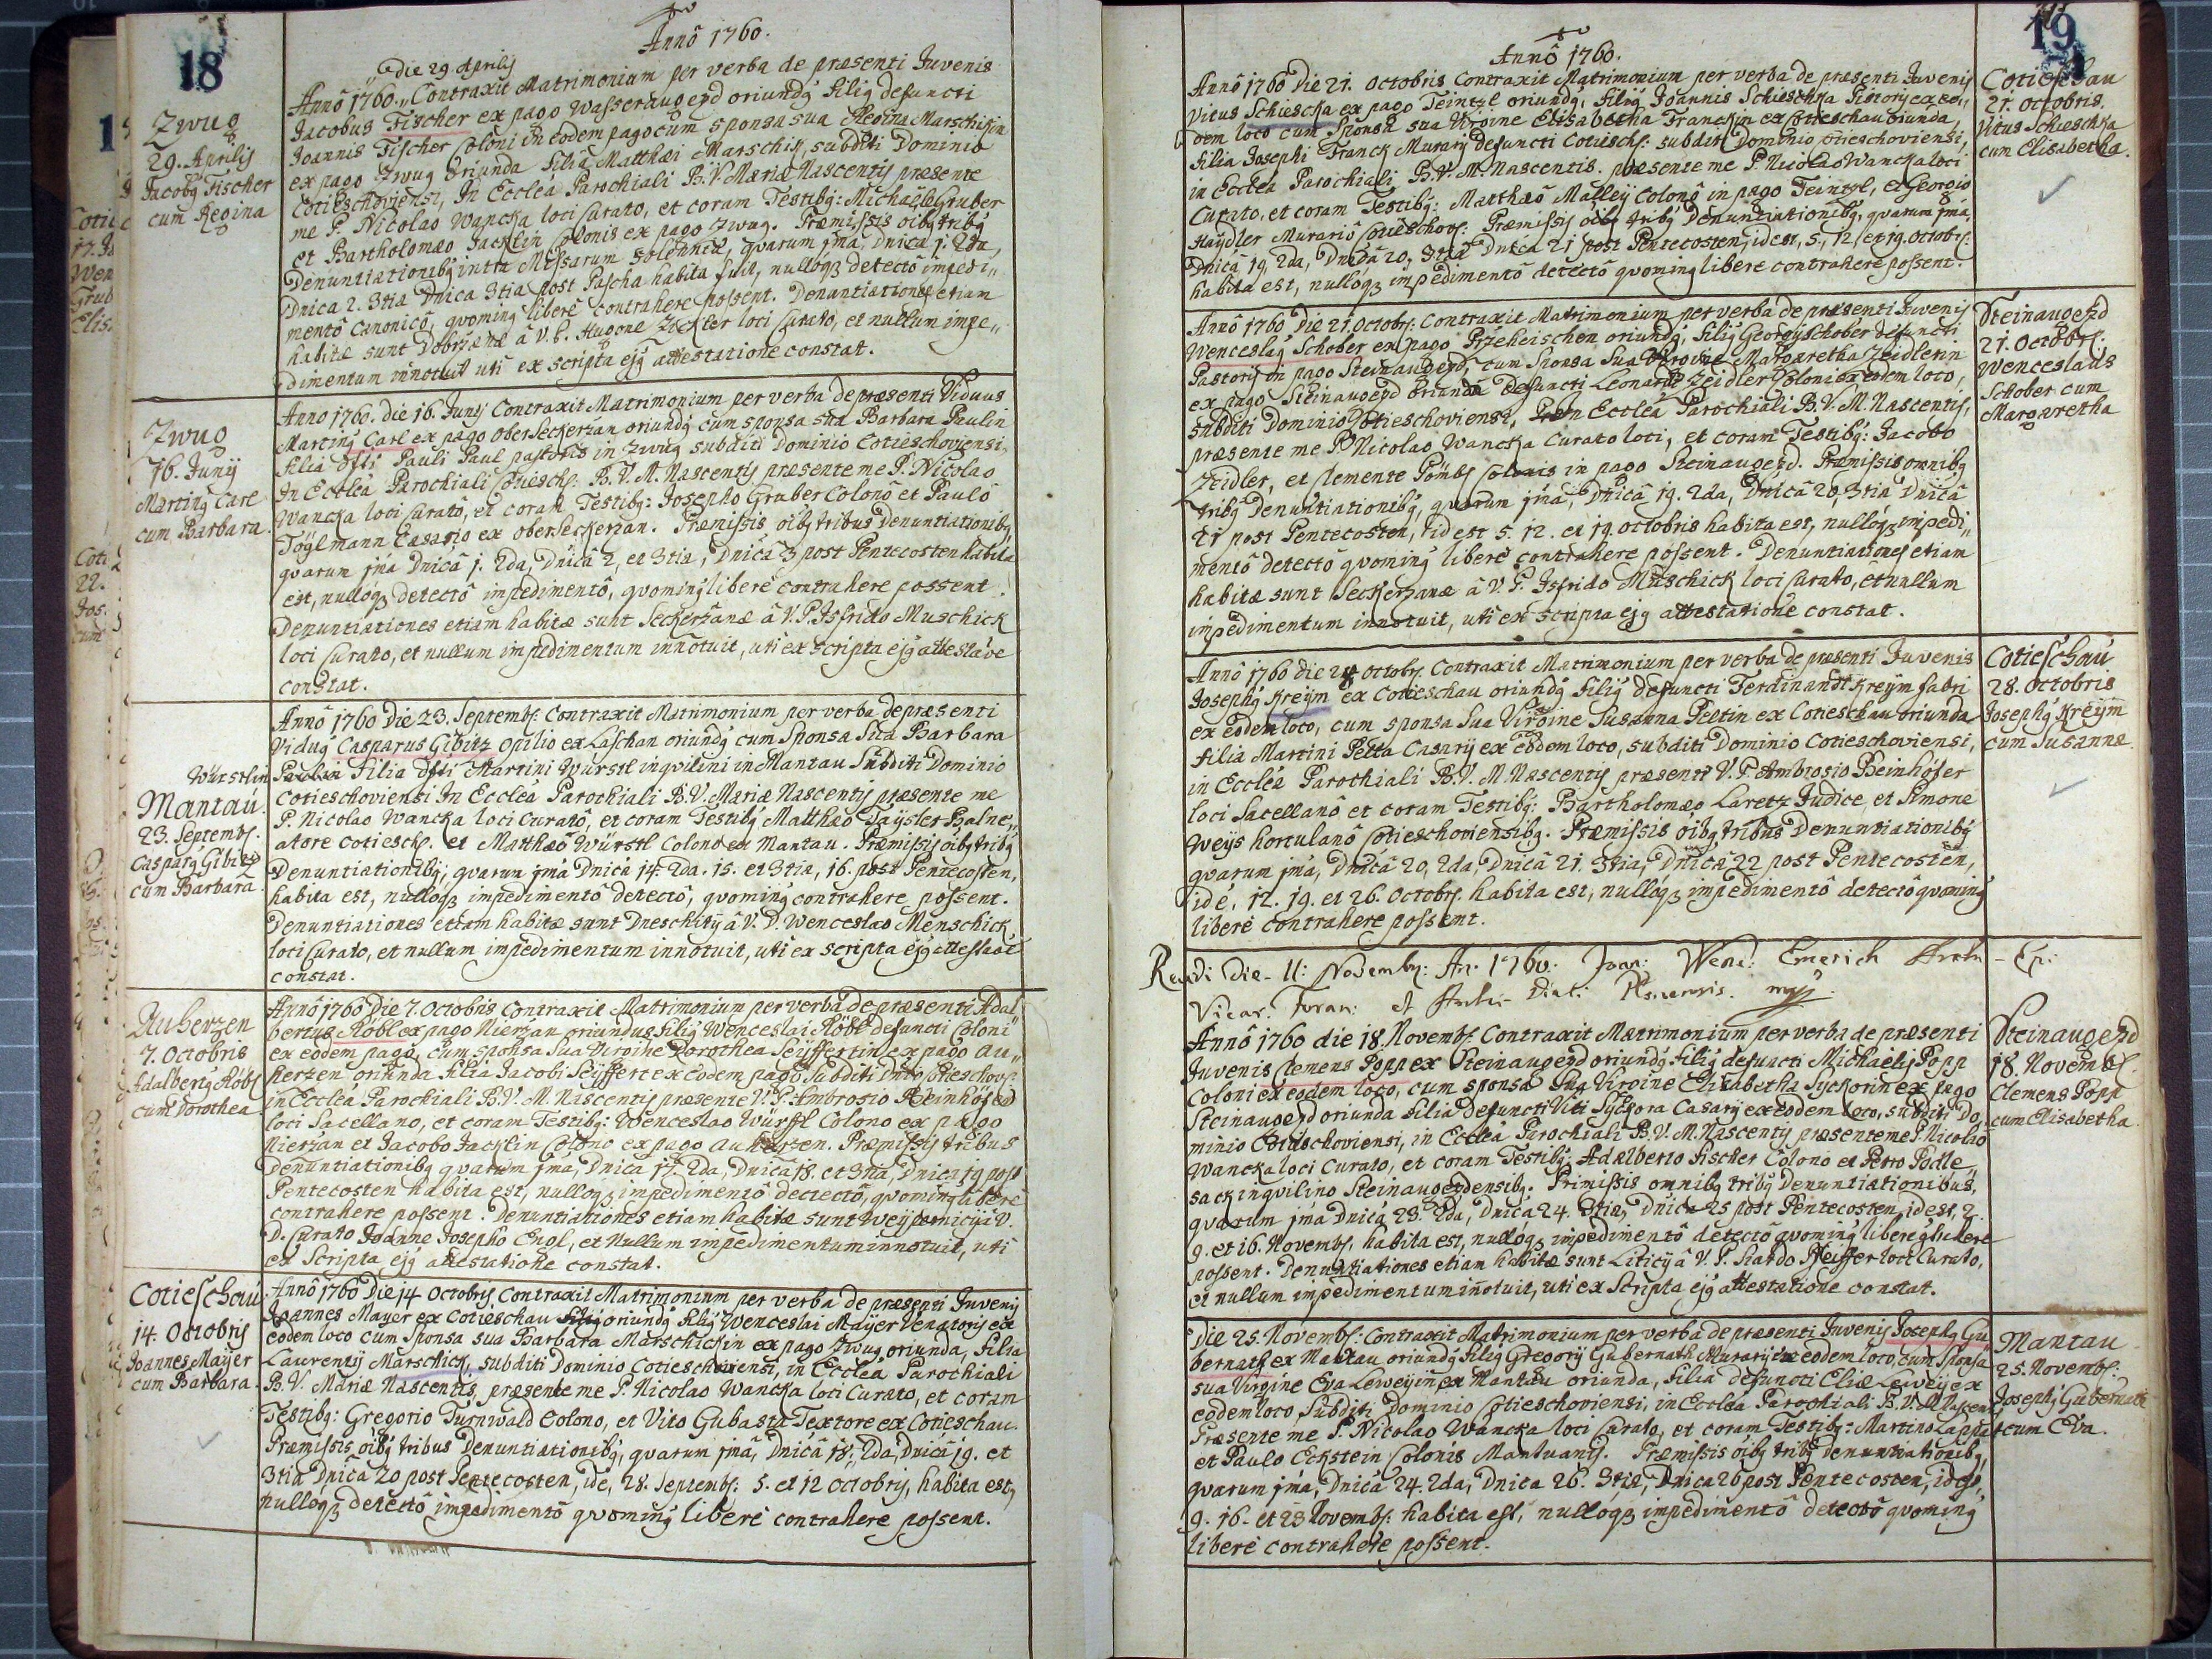 18
Annô 1760.
Zwug
29. Aprilis
Jacobg Fischer
cum Regina
Die 29 Aprilis
Annô 1760. Contraxit Matrimonium per verba de præsenti Juvenis
Jacobus Fischer ex pago Wasseraugezd oriundg filig defuncti
Joannis Fischer Coloni in eodem pago cum sponsa sua Regina Marschikin
ex pago Zwug oriunda filia Matthæi Marschik, subditi Dominio
Cotieschoviensi, In Ecclea Parochiali B.V. Mariæ Nascentis præsente
me P. Nicolao Wancka loci Curato, et coram Testibg: Michaele Gruber
et Bartholomæo Jacklin Colonis ex pago Zwug. Præmissis oibg tribg
Denuntiationibg intra Missarum solennia, quarum jma, Dnica j. 2da,
Dnica 2. 3tia Dnica 3tia post Pascha habita fuit, nulloqz detectô impedi„
mentô Canonicô, qvoming liberè contrahere possent. Denuntiationes etiam
habitæ sunt Dobrzanæ â V. P. Hugone Zeckler loci Curato, et nullum impe„
dimentum innotuit uti ex scripta ejg attestatione constat.
Zwug
16. Junij
Marting Carl
cum Barbara.
Anno 1760. die 16. Junij Contraxit Matrimonium per verba de præsenti Viduus
Marting Carl ex pago Oberseckerzan oriundg cum sponsa sua Barbara Paulin
filia dfti Pauli Paul pastoris in Zwug subditi Dominio Cotieschoviensi,
In Ecclea Parochiali Cotiesch: B.V.M. Nascentis præsente me P. Nicolao
Wancka loci Curatô, et coram Testibg: Josepho Gruber Colonô et Paulô
Töglmann Casario ex oberseckerzan. Præmissis oibg tribus Denuntiationibg,
qvarum jma Dnicâ j. 2da, Dnicâ 2, et 3tia, Dnicâ 3 post Pentecosten habita
est, nullôqz detectô impedimentô, qvoming liberè contrahere possent.
Denuntiationes etiam habitæ sunt Seckerzanæ â V. P. Isfrido Muschick
loci Curato, et nullum impedimentum innotuit, uti ex scripta ejg attestaõe
constat.
Würstlin
Mantau
23. Septembr.
Casparg Gibitz
cum Barbara.
Annô 1760 Die 23. Septembr. Contraxit Matrimonium per verba de præsenti
Vidug Casparus Gibitz opilio ex Laschan oriundg cum Sponsa Sua Barbara
Paulin Filia dfti Martini Würstl inqvilini in Mantau Subditi Dominio
Cotieschoviensi In Ecclea Parochiali B.V. Mariæ Nascentis præsente me
P. Nicolao Wancka loci Curatô, et coram Testibg Matthæo Taÿsler Balne„
atore Cotiesch. et Matthæô Würstl Colono ex Mantau. Præmissis oibg tribg
Denuntiationibg, qvarum jma Dnicâ 14. 2da. 15. et 3tia, 16. post Pentecosten,
habita est, nullôqz impedimentô detectô, qvoming contrahere possent.
Denuntiationes etiam habitæ sunt Dneschitij â V. D. Wenceslao Menschick
loci Curato, et nullum impedimentum innotuit, uti ex scripta ejg attestaõe
constat.
Auherzen
7. Octobris
Adalbertg Röbl
cum Dorothea
Annô 1760 Die 7. Octobris Contraxit Matrimonium per verba de præsenti Adal„
bertus Röbl ex pago Nierzan oriundus filig Wenceslai Röbl defuncti Coloni
ex eodem pago, cum sponsa Sua Virgine Dorothea Seÿffertin ex pago Au„
herzen oriunda filia Jacobi Seÿffert ex eodem pago Subditi Dnio Cotieschov:
in Ecclea Parochiali B.V. M. Nascentis præsente V.P. Ambrosio Reinhöfer
loci Sacellano, et coram Testibg: Wenceslao Würstl Colono ex pago
Nierzan et Jacobo Jacklin Colono ex pago Auherzen. Præmissis tribus
Denuntiationibg qvarum jma, Dnica 17. 2da, Dnicâ 18. et 3tia, Dnica 19 post
Pentecosten habita est, nulloqz impedimentô detectô, qvoming liberè
contrahere possent. Denuntiationes etiam habitæ sunt Weÿpernicij â V.
D. Curato Joanne Josepho Engl, et Nullum impedimentum innotuit, uti
ex Scripta ejg attestatione constat.
Cotieschau
14. Octobris
Joannes Maÿer
cum Barbara.
Annô 1760 Die 14 Octobris Contraxit Matrimonium per verba de præsenti Juvenis
Joannes Mayer ex Cotieschau filig oriundg filig Wenceslai Maÿer Venatoris ex
eodem loco cum Sponsa sua Barbara Marschickin ex pago Zwug oriunda, filia
Laurentij Marschick, subditi Dominio Cotieschoviensi, in Ecclea Parochiali
B.V. Mariæ Nascentis, præsente me P. Nicolao Wancka loci Curato, et coram
Testibg: Gregorio Turnwald Colono, et Vito Gubasta Textore ex Cotieschau.
Præmissis oibg tribus Denuntiationibg, qvarum jma, Dnicâ 18., 2da, Dnicâ 19. et
3tia Dnica 20 post Pentecosten, id e, 28. Septembr: 5. et 12 Octobris, habita est,
nulloqz detectô impedimentô qvoming liberè contrahere possent.
19
Annô 1760.
Annô 1760 Die 21. Octobris Contraxit Matrimonium per verba de præsenti Juvenis
Vitus Schieschka ex pago Teintzl oriundg, filig Joannis Schieschka Pistoris ex eo„
dem loco cum Sponsa sua Virgine Elisabetha Franckin ex Cotieschau oriunda,
filia Josephi Franck Murarij defuncti Cotiesch: subditi Dominio Cotieschoviensi,
in Ecclea Parochiali B.V.M. Nascentis. præsente me P. Nicolao Wancka loci
Curato, et coram Testibg: Matthæô Malleÿ Colonô in pago Teintzl, et Georgio
Haÿdler Murariô Cotieschov: Præmissis oibg tribg Denuntiationibg, qvarum jma,
Dnicâ 19, 2da, Dnicâ 20, 3tia Dnica 21 post Pentecosten, id est, 5, 12 et 19. Octobr:
habita est, nullôqz impedimentô detectô qvoming libere contrahere possent.
Cotieschau
21. octobris.
Vitus Schieschka
cum Elisabetha.
Annô 1760 Die 21. Octobr: Contraxit Matrimonium per verba de præsenti Juvenis
Wenceslag Schober ex pago Przeheischen oriundg, filig Georgij Schober defuncti
Pastoris in pago Steinaugezd, cum Sponsa Sua Virgine Margaretha Zeidlerin
ex pago Steinaugezd oriunda defuncti Leonardi Zeidler Coloni ex eodem loco,
subditi Dominio Cotieschoviensi, In Ecclea Parochiali B.V.M. Nascentis,
præsente me P. Nicolao Wancka Curato loci, et coram Testibg: Jacobo
Zeidler, et Clemente Pömbs Colonis in pago Steinaugezd. Præmissis omnibg
tribg Denuntiationibg, qvarum jma, Dnicâ 19. 2da, Dnicâ 20, 3tia Dnicâ
21 post Pentecosten, id est 5. 12. et 19. Octobris habita est, nullôqz impedi„
mentô detectô qvoming liberè contrahere possent. Denuntiationes etiam
habitæ sunt Seckerzanæ â V. P. Isfrido Muschick loci Curato, et nullum
impedimentum innotuit, uti ex scripta ejg attestatione constat.
Steinaugezd
21. Octobr:
Wenceslaus
Schober cum
Margaretha
Annô 1760 die 28 octobr. Contraxit Matrimonium per verba de præsenti Juvenis
Josephg Kreÿm ex Cotieschau oriundg filig defuncti Ferdinandi Kreÿm fabri
ex eodem loco, cum sponsa sua Virgine Susanna Peltin ex Cotieschau oriunda
filia Martini Pelta Casarij ex eodem loco, subditi Dominio Cotieschoviensi,
in Ecclea Parochiali B.V.M. Nascentis præsente V.P. Ambrosio Reinhöfer
loci Sacellanô et coram Testibg: Bartholomæo Laretz Judice, et Simone
Weÿs hortulanô Cotieschoviensibg. Præmissis oibg tribus Denuntiationibg
qvarum jma, Dnicâ 20, 2da, Dnicâ 21. 3tia, Dnicâ 22 post Pentecosten,
id e, 12. 19. et 26. Octobr. habita est, nullôqz impedimentô detectô qvoming
liberè contrahere possent.
Cotieschau
28. Octobris
Josephg Kreÿm
cum Susanna.
Revidi Die 11: Novembr: An. 1760. Joan: Wenc: Emerich Archi-Ep:
Vicar. Foran: et Archi-Diac: Plsnensis. mpp
Annô 1760 die 18. Novembr. Contraxit Matrimonium per verba de præsenti
Juvenis Clemens Popp ex Steinaugezd oriundg filig defuncti Michaelis Popp
Coloni ex eodem loco, cum sponsa Sua Virgine Elisabetha Syckorin ex pago
Steinaugezd oriunda filia defuncti Viti Syckora Casarij ex eodem loco, subditi Do
minio Cotieschoviensi, in Ecclea Parochiali B.V.M. Nascentis præsente me P. Nicolao
Wancka loci Curato, et coram Testibg: Adalberto Fischer Colono et Petro Podle„
sack inqvilino Steinaugezdensibg. Primissis omnibg tribg Denuntiationibus,
qvarum jma Dnicâ 23. 2da, Dnicâ 24. 3tia, Dnicâ 25 post Pentecosten, id est, 2.
9. et 16. Novembr. habita est, nullôqz impedimentô detectô qvoming liberè
possent. Denuntiationes etiam habitæ sunt Liticij â V. P. Siardo Pfeiffer loci Curato,
et nullum impedimentum innotuit, uti ex Scripta ejg attestatione constat.
Steinaugezd
18. Novembr.
Clemens Popp
cum Elisabetha.
Die 25. Novembr: Contraxit Matrimonium per verba de præsenti Juvenis Josephg Gu„
bernath ex Mantau oriundg filig Gregorij Gubernath Murarij ex eodem loco, cum Sponsa
sua Virgine Eva Leweÿin ex Mantau oriunda, filia defuncti Eliæ Leweÿ ex
eodem loco Subditi Dominio Cotieschoviensi, in Ecclea Parochiali B.V.M. Nascentis
Præsente me P. Nicolao Wancka loci Curato, et coram Testibg: Martino Lappat
et Paulo Eckstein Colonis Mantuanis. Præmissis oibg tribg denuntiationibg,
qvarum jma, Dnicâ 24. 2da, Dnica 26. 3tia, Dnica 26 post Pentecosten, id est,
9. 16. et 23 Novembr: habita est, nulloqz impedimentô detectô qvoming
liberè contrahere possent.
Mantau
25. Novembr:
Josephg Gubernath
cum Eva.